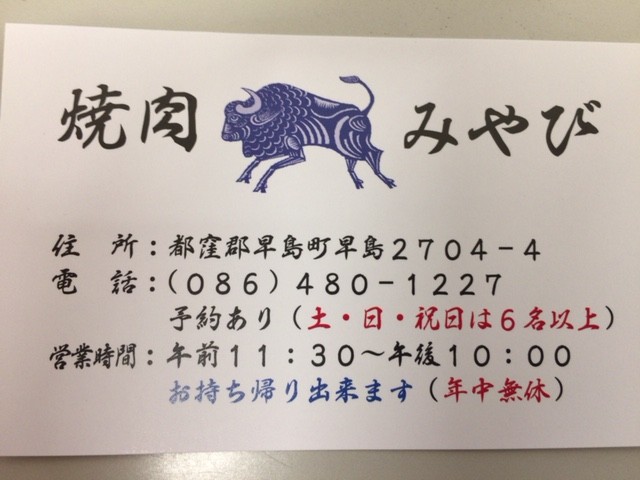 焼肉 みやび
住　所：都窪郡早島町早島２７０４－４
電　話：（０８６）４８０－１２２７
予約あり（土・日・祝日は６名以上）
営業時間：午前１１：３０～午後１０：００
お持ち帰り出来ます（年中無休）